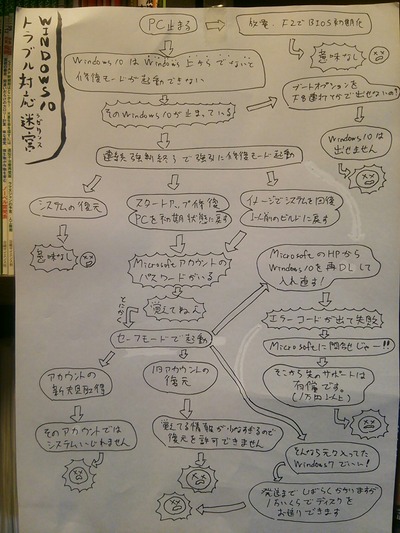 WINDOWS10
トラブル対応迷宮
ラビリンス
PC止まる
放電、F2でBIOS初期化
意味なし
Windows10はWindows上からでないと
修復モードが起動できない
そのWindows10が止まっている
ブートオプションを
F8連打とかで出せないの?
Windows10は
出せません
連続強制終了で強引に修復モード起動
システムの復元
意味なし
スタートアップ修復
PCを初期状態に戻す
イメージでシステムを回復
以前のビルドに戻す
Microsoftアカウントの
パスワードがいる
覚えてねえ
とにかく
セーフモードで起動
MicrosoftのHPから
Windows10を再DLして
入れ直す!
エラーコードが出て失敗
Microsoftに問合じゃー!!
そこから先のサポートは
有償です。
(1万円以上)
アカウントの
新規取得
そのアカウントでは
システムいじれません
旧アカウントの
復元
覚えてる情報が少なすぎるので
復元を許可できません
そんなら元々入ってた
Windows7でいい!
発送までしばらくかかりますが
1万いくらでディスクを
お送りできます